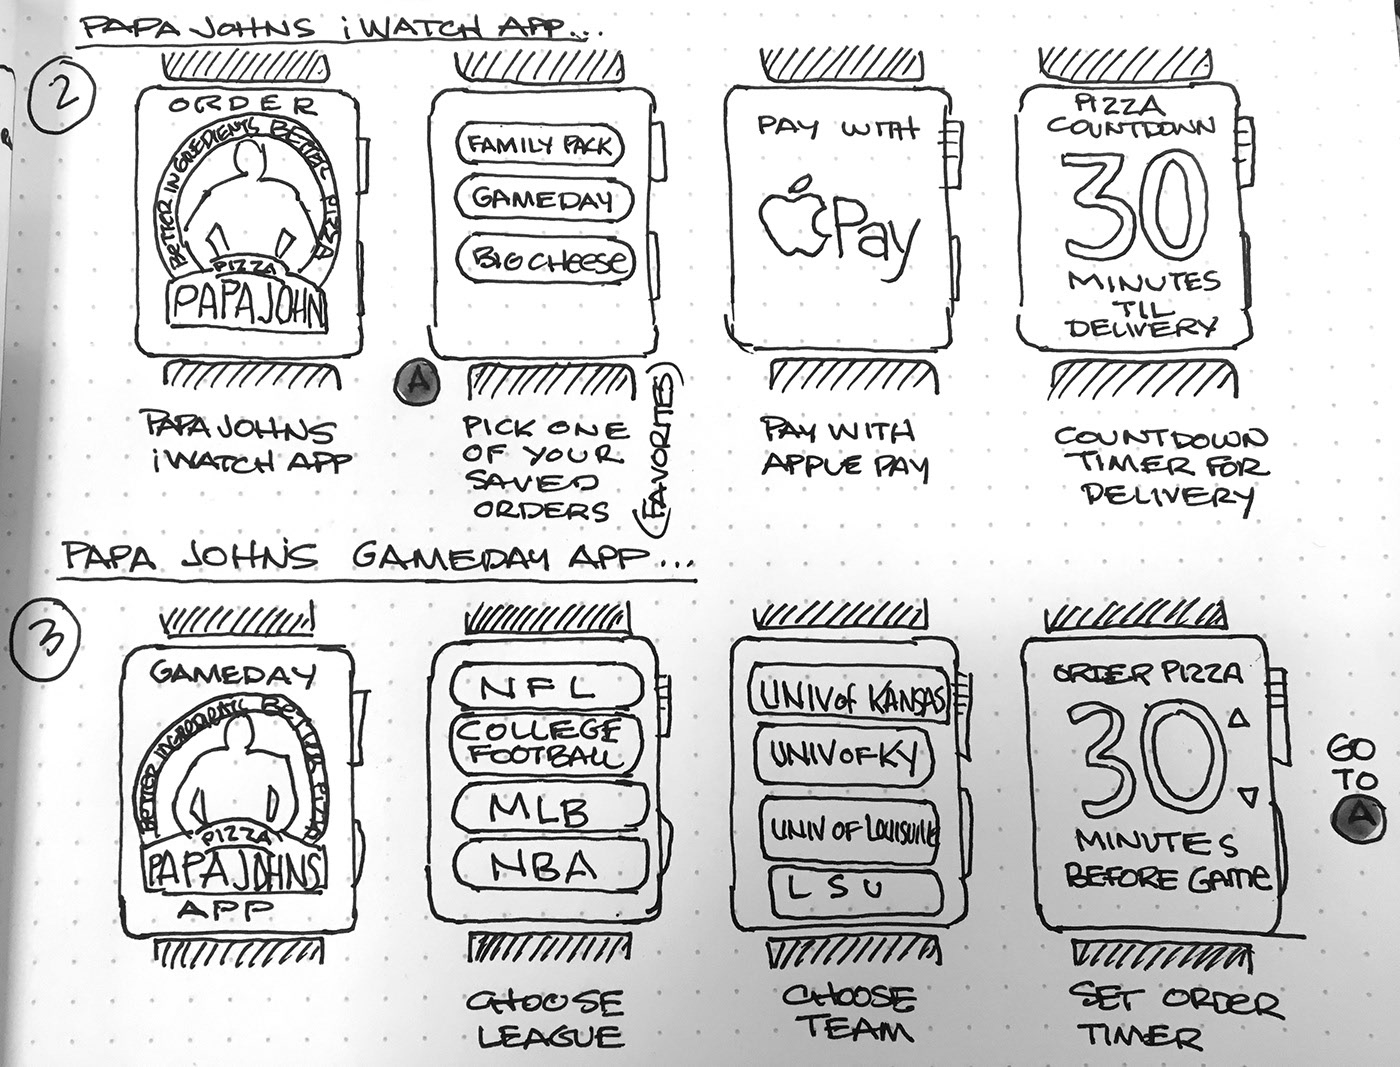 PAPA JOHNS iWATCH APP...
2
ORDER
BETTER INGREDIENTS BETTER PIZZA
PIZZA
PAPA JOHN
PAPA JOHNS
iWATCH APP
FAMILY PACK
GAMEDAY
BIG CHEESE
A
PICK ONE
OF YOUR
SAVED
ORDERS
(FAVORITES)
PAY WITH
Pay
PAY WITH
APPLE PAY
PIZZA
COUNTDOWN
30
MINUTES
TIL
DELIVERY
COUNTDOWN
TIMER FOR
DELIVERY
PAPA JOHN'S GAMEDAY APP...
3
GAMEDAY
BETTER INGREDIENTS BETTER PIZZA
PIZZA
PAPA JOHNS
APP
NFL
COLLEGE
FOOTBALL
MLB
NBA
CHOOSE
LEAGUE
UNIV of KANSAS
UNIV OF KY
UNIV OF LOUISVILLE
LSU
CHOOSE
TEAM
ORDER PIZZA
30
MINUTES
BEFORE GAME
SET ORDER
TIMER
GO
TO
A